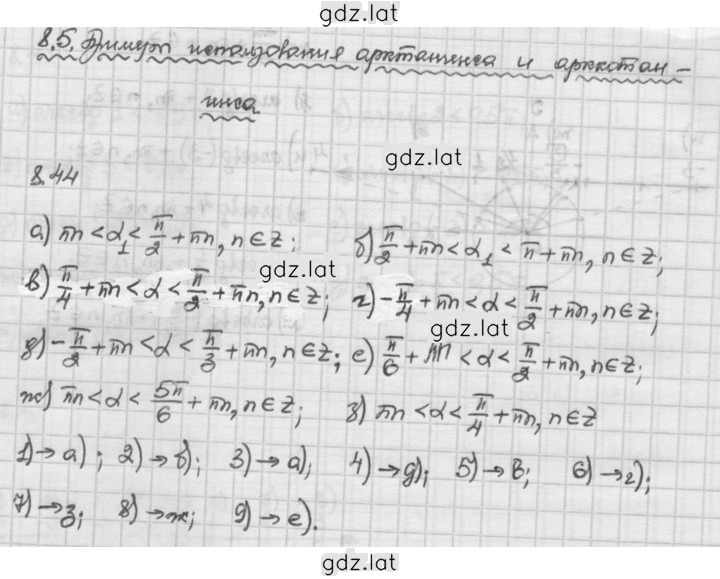 gdz.lat
8.5. Примеры использования арктангенса и арккотан-
генса.
gdz.lat
8.44
а) πn < α₁ < π/2 + πn, n ∈ Z; б) π/2 + πn < α₁ < π + πn, n ∈ Z;
gdz.lat
в) π/4 + πn < α < π/2 + πn, n ∈ Z; г) -π/4 + πn < α < π/2 + πn, n ∈ Z;
gdz.lat
д) -π/2 + πn < α < π/3 + πn, n ∈ Z; е) π/6 + πn < α < π/2 + πn, n ∈ Z;
ж) πn < α < 5π/6 + πn, n ∈ Z; з) πn < α < π/4 + πn, n ∈ Z
1) → а); 2) → б); 3) → а); 4) → д); 5) → в; 6) → г);
7) → з; 8) → ж; 9) → е).
gdz.lat